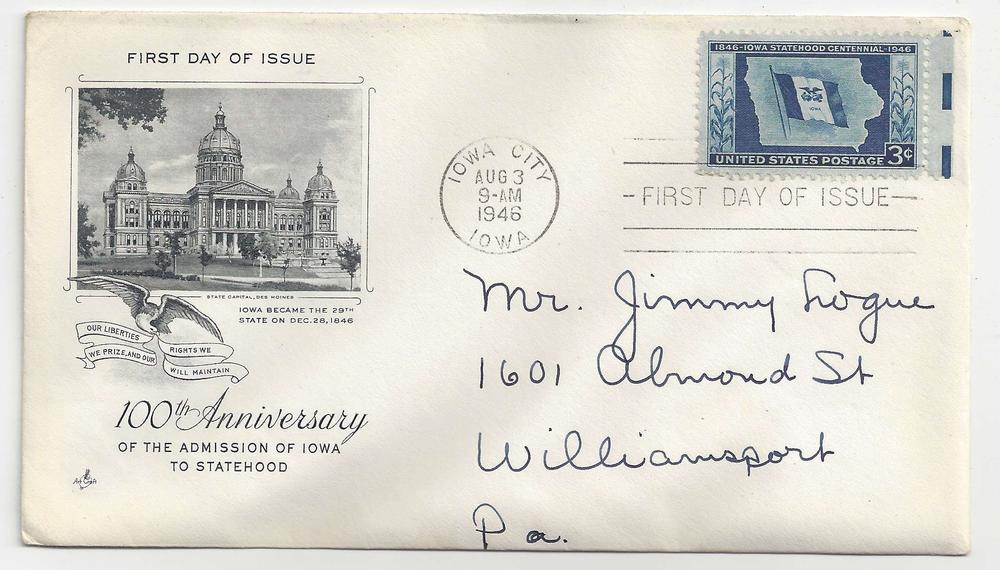 FIRST DAY OF ISSUE
STATE CAPITAL, DES MOINES
IOWA BECAME THE 29TH
STATE ON DEC. 28, 1846
OUR LIBERTIES
WE PRIZE, AND OUR
RIGHTS WE
WILL MAINTAIN
100th Anniversary
OF THE ADMISSION OF IOWA
TO STATEHOOD
Art Craft
IOWA CITY
AUG 3
9-AM
1946
IOWA
1846-IOWA STATEHOOD CENTENNIAL-1946
IOWA
UNITED STATES POSTAGE 3¢
FIRST DAY OF ISSUE
Mr. Jimmy Logue
1601 Almond St
Williamsport
Pa.